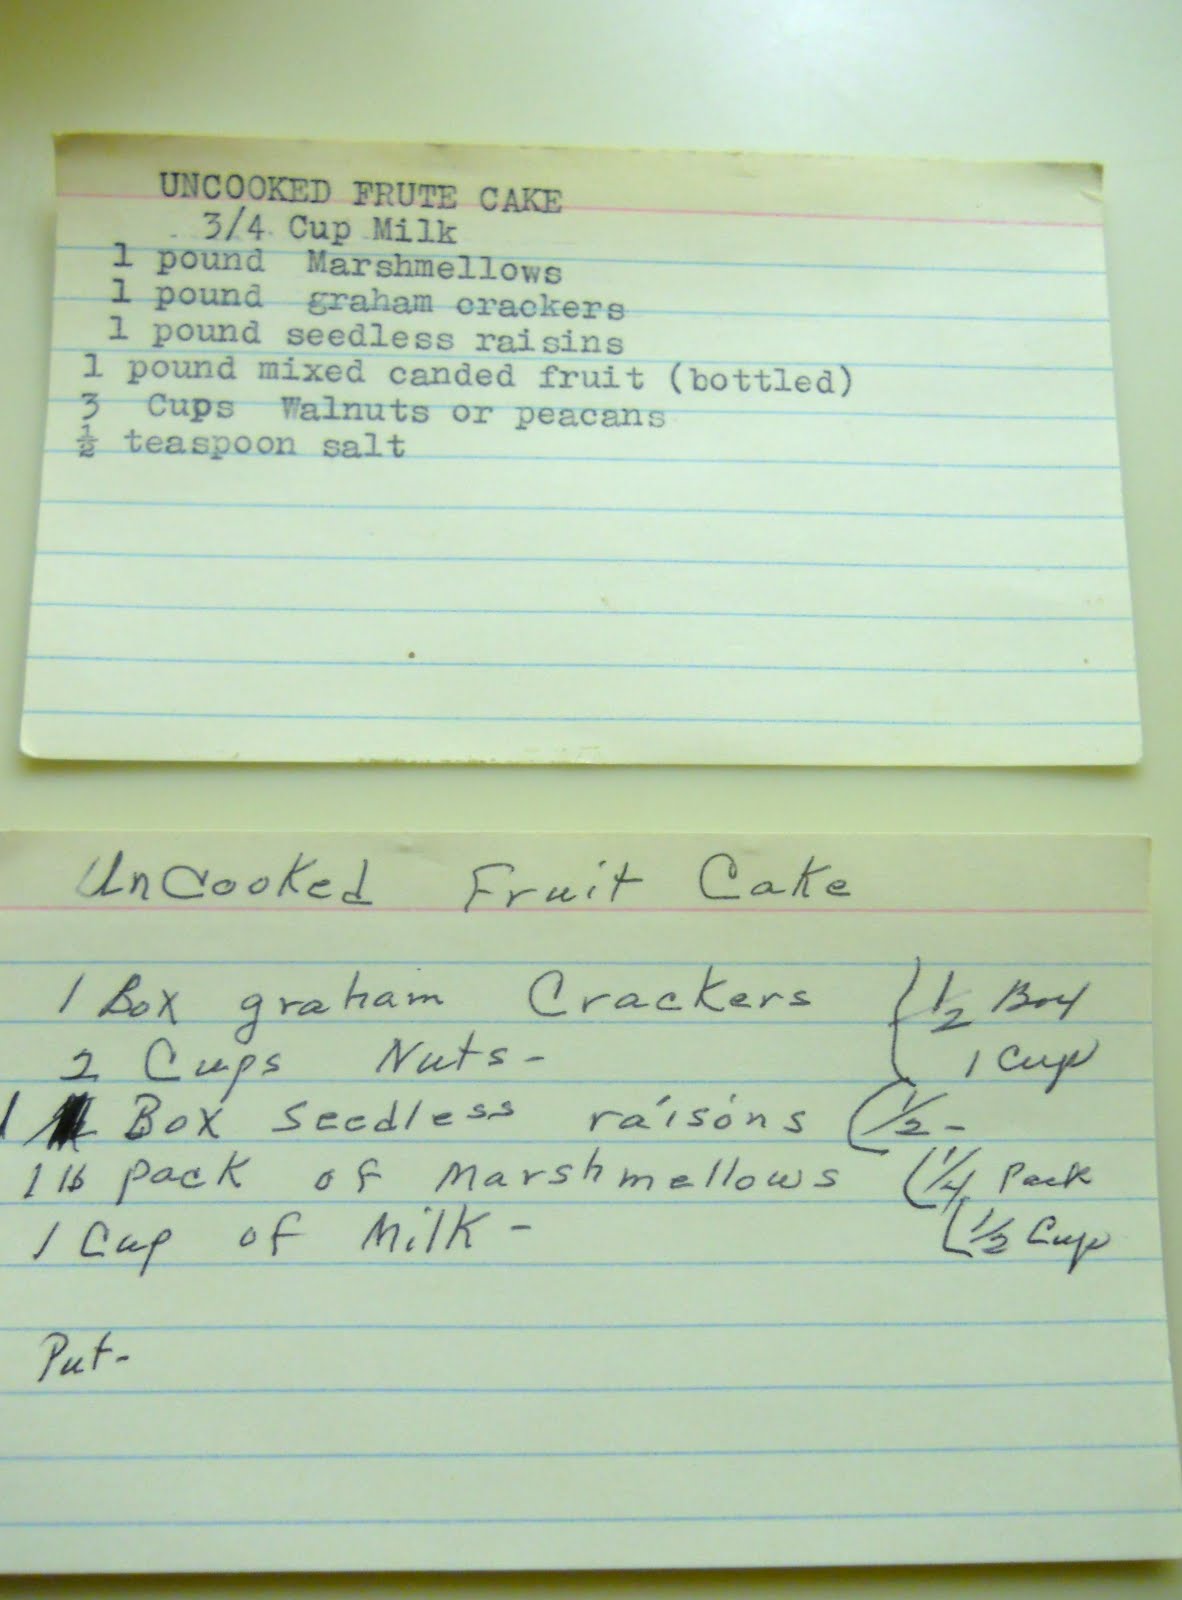 UNCOOKED FRUTE CAKE
3/4 Cup Milk
1 pound Marshmellows
1 pound graham crackers
1 pound seedless raisins
1 pound mixed canded fruit (bottled)
3 Cups Walnuts or peacans
½ teaspoon salt
UnCooked Fruit Cake
1 Box graham Crackers 1/2 Box
2 Cups Nuts- 1 Cup
1 Box Seedless raisons 1/2 -
1 lb pack of Marshmellows 1/4 Pack
1 Cup of Milk - 1/2 Cup
Put-